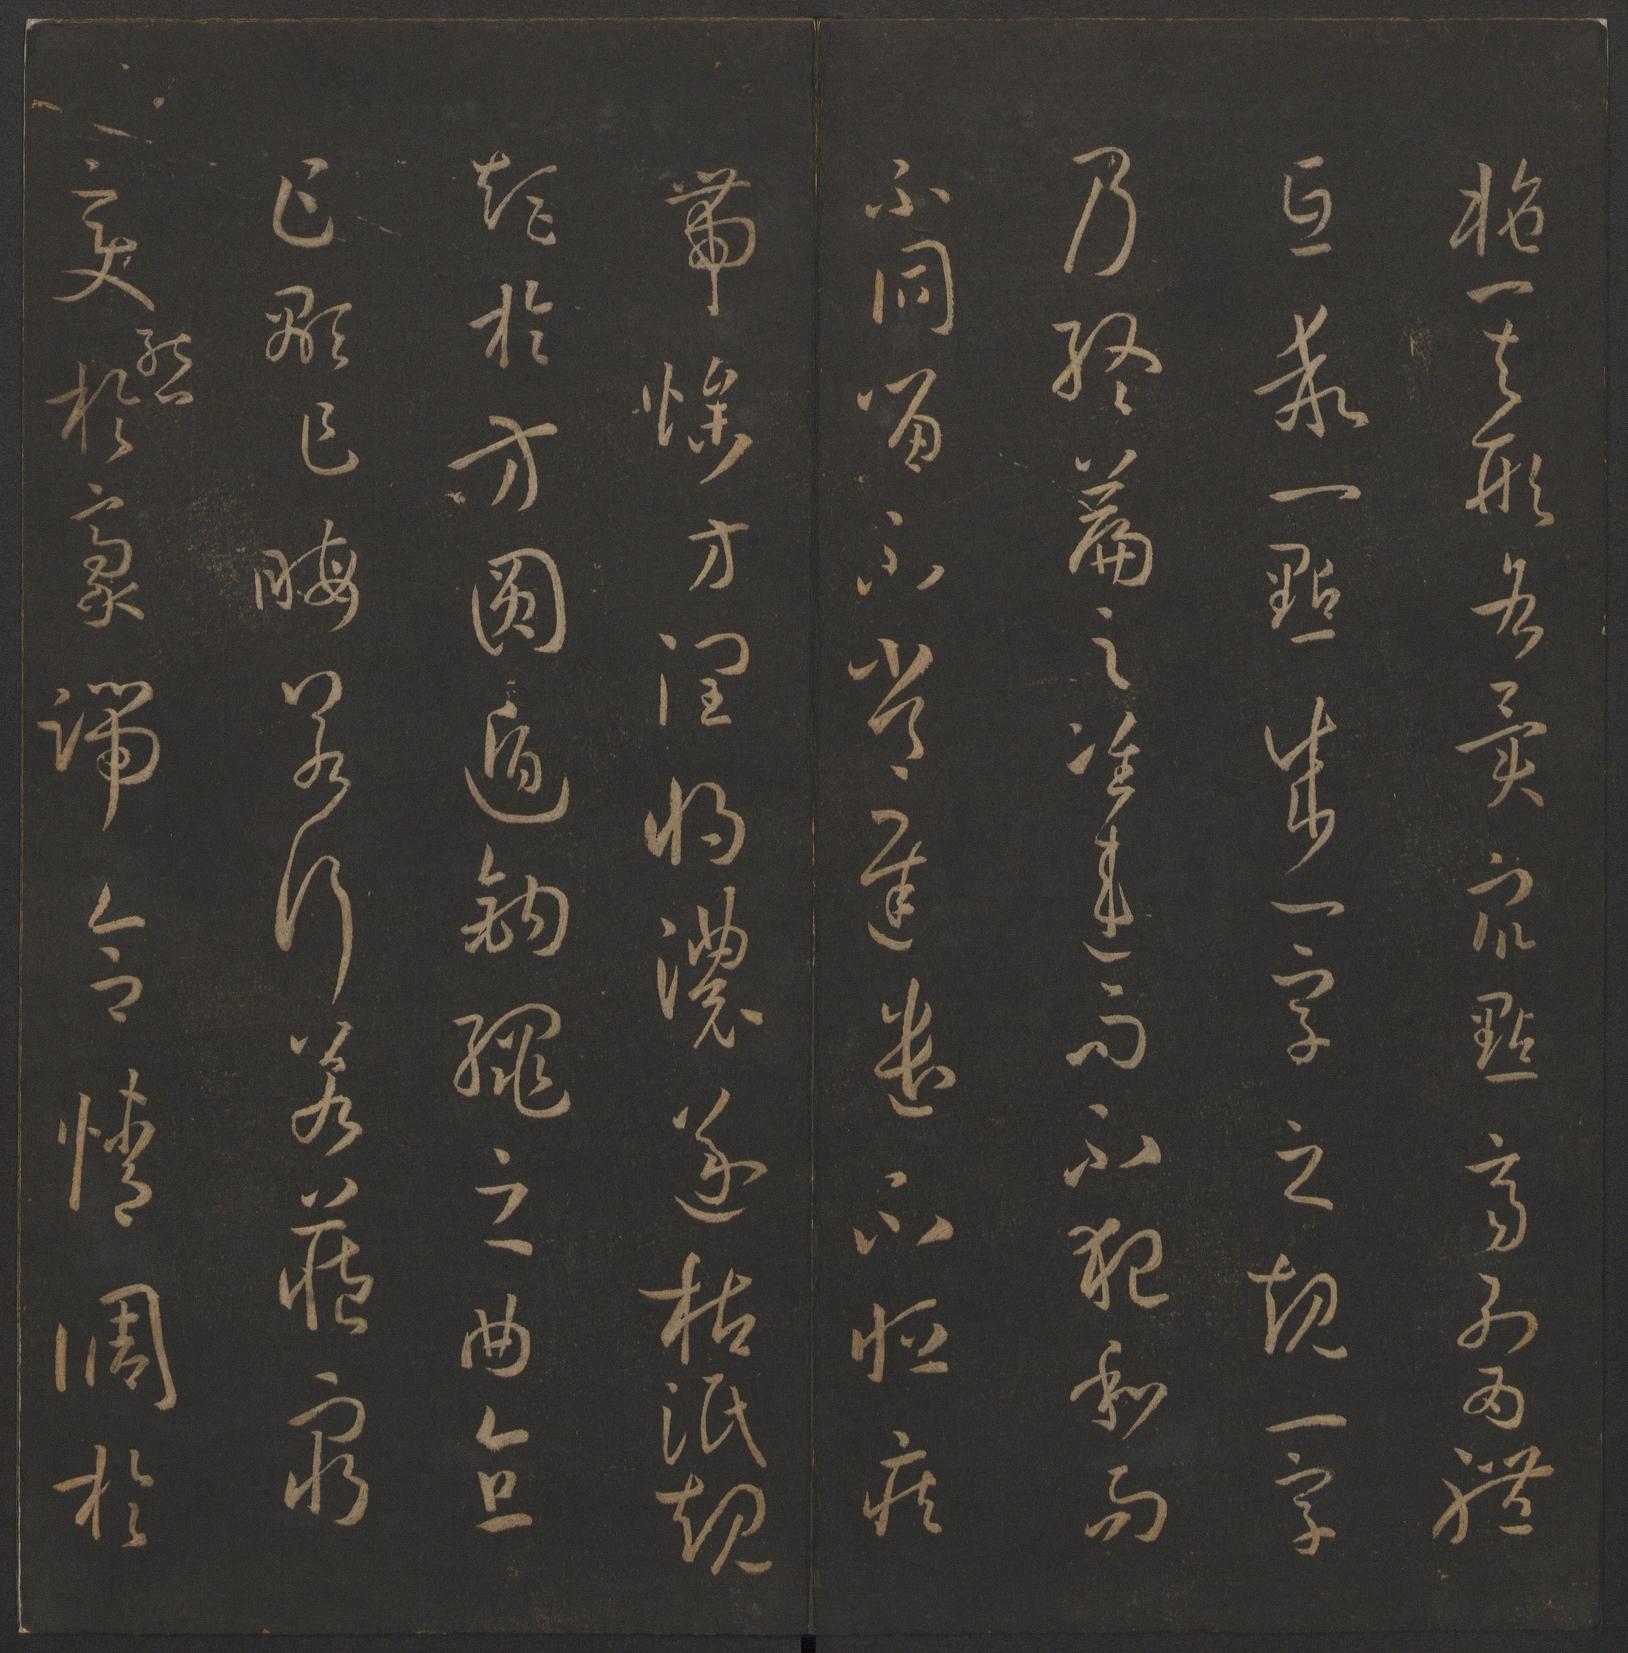 施其形各異衆點齊列為體
互乖一點成一字之規一字
乃終篇之准違而不犯和而
不同留不常遲遣不恒疾
帶燥方潤將濃遂枯泯規
矩於方圓遁鉤繩之曲直
乍顯乍晦若行若藏窮
變態於豪端合情調於